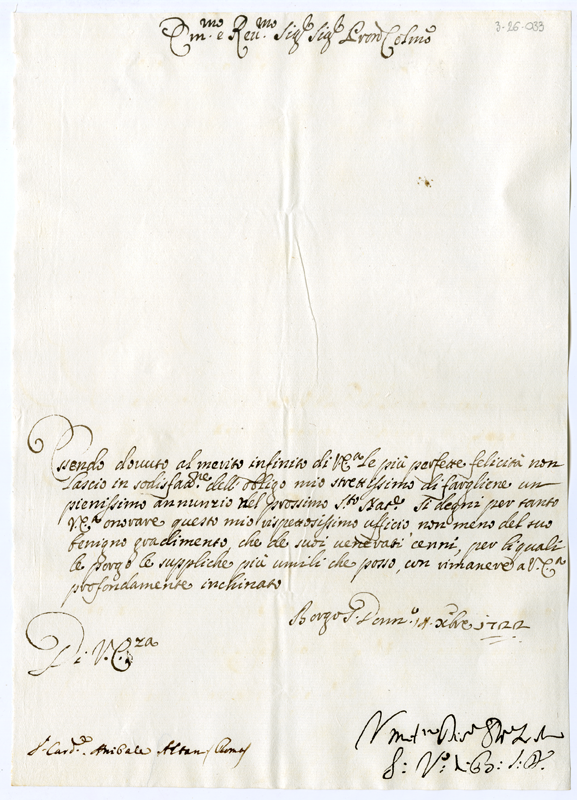 3-26-033
Em.mo e Reu.mo Sig.r Sig.r Pron Colmo
Essendo dovuto al merito infinito di V.E.a le più perfette felicità non
lascio in sodisfaz.ne dell'obligo mio strettissimo di fargliene un
pienissimo annunzio nel prossimo S.to Nat.e Si degni per tanto
V.E.a onorare questo mio rispettosissimo ufficio non meno del suo
benigno gradimento, che de suoi venerati cenni, per li quali
le porgo le suppliche più umili che posso, con rimanere a V.E.a
profondamente inchinato
Borgo S. Donn.o 14 Xbre 1722
Di V.E.za
S.r Card.e Anibale Albani Roma